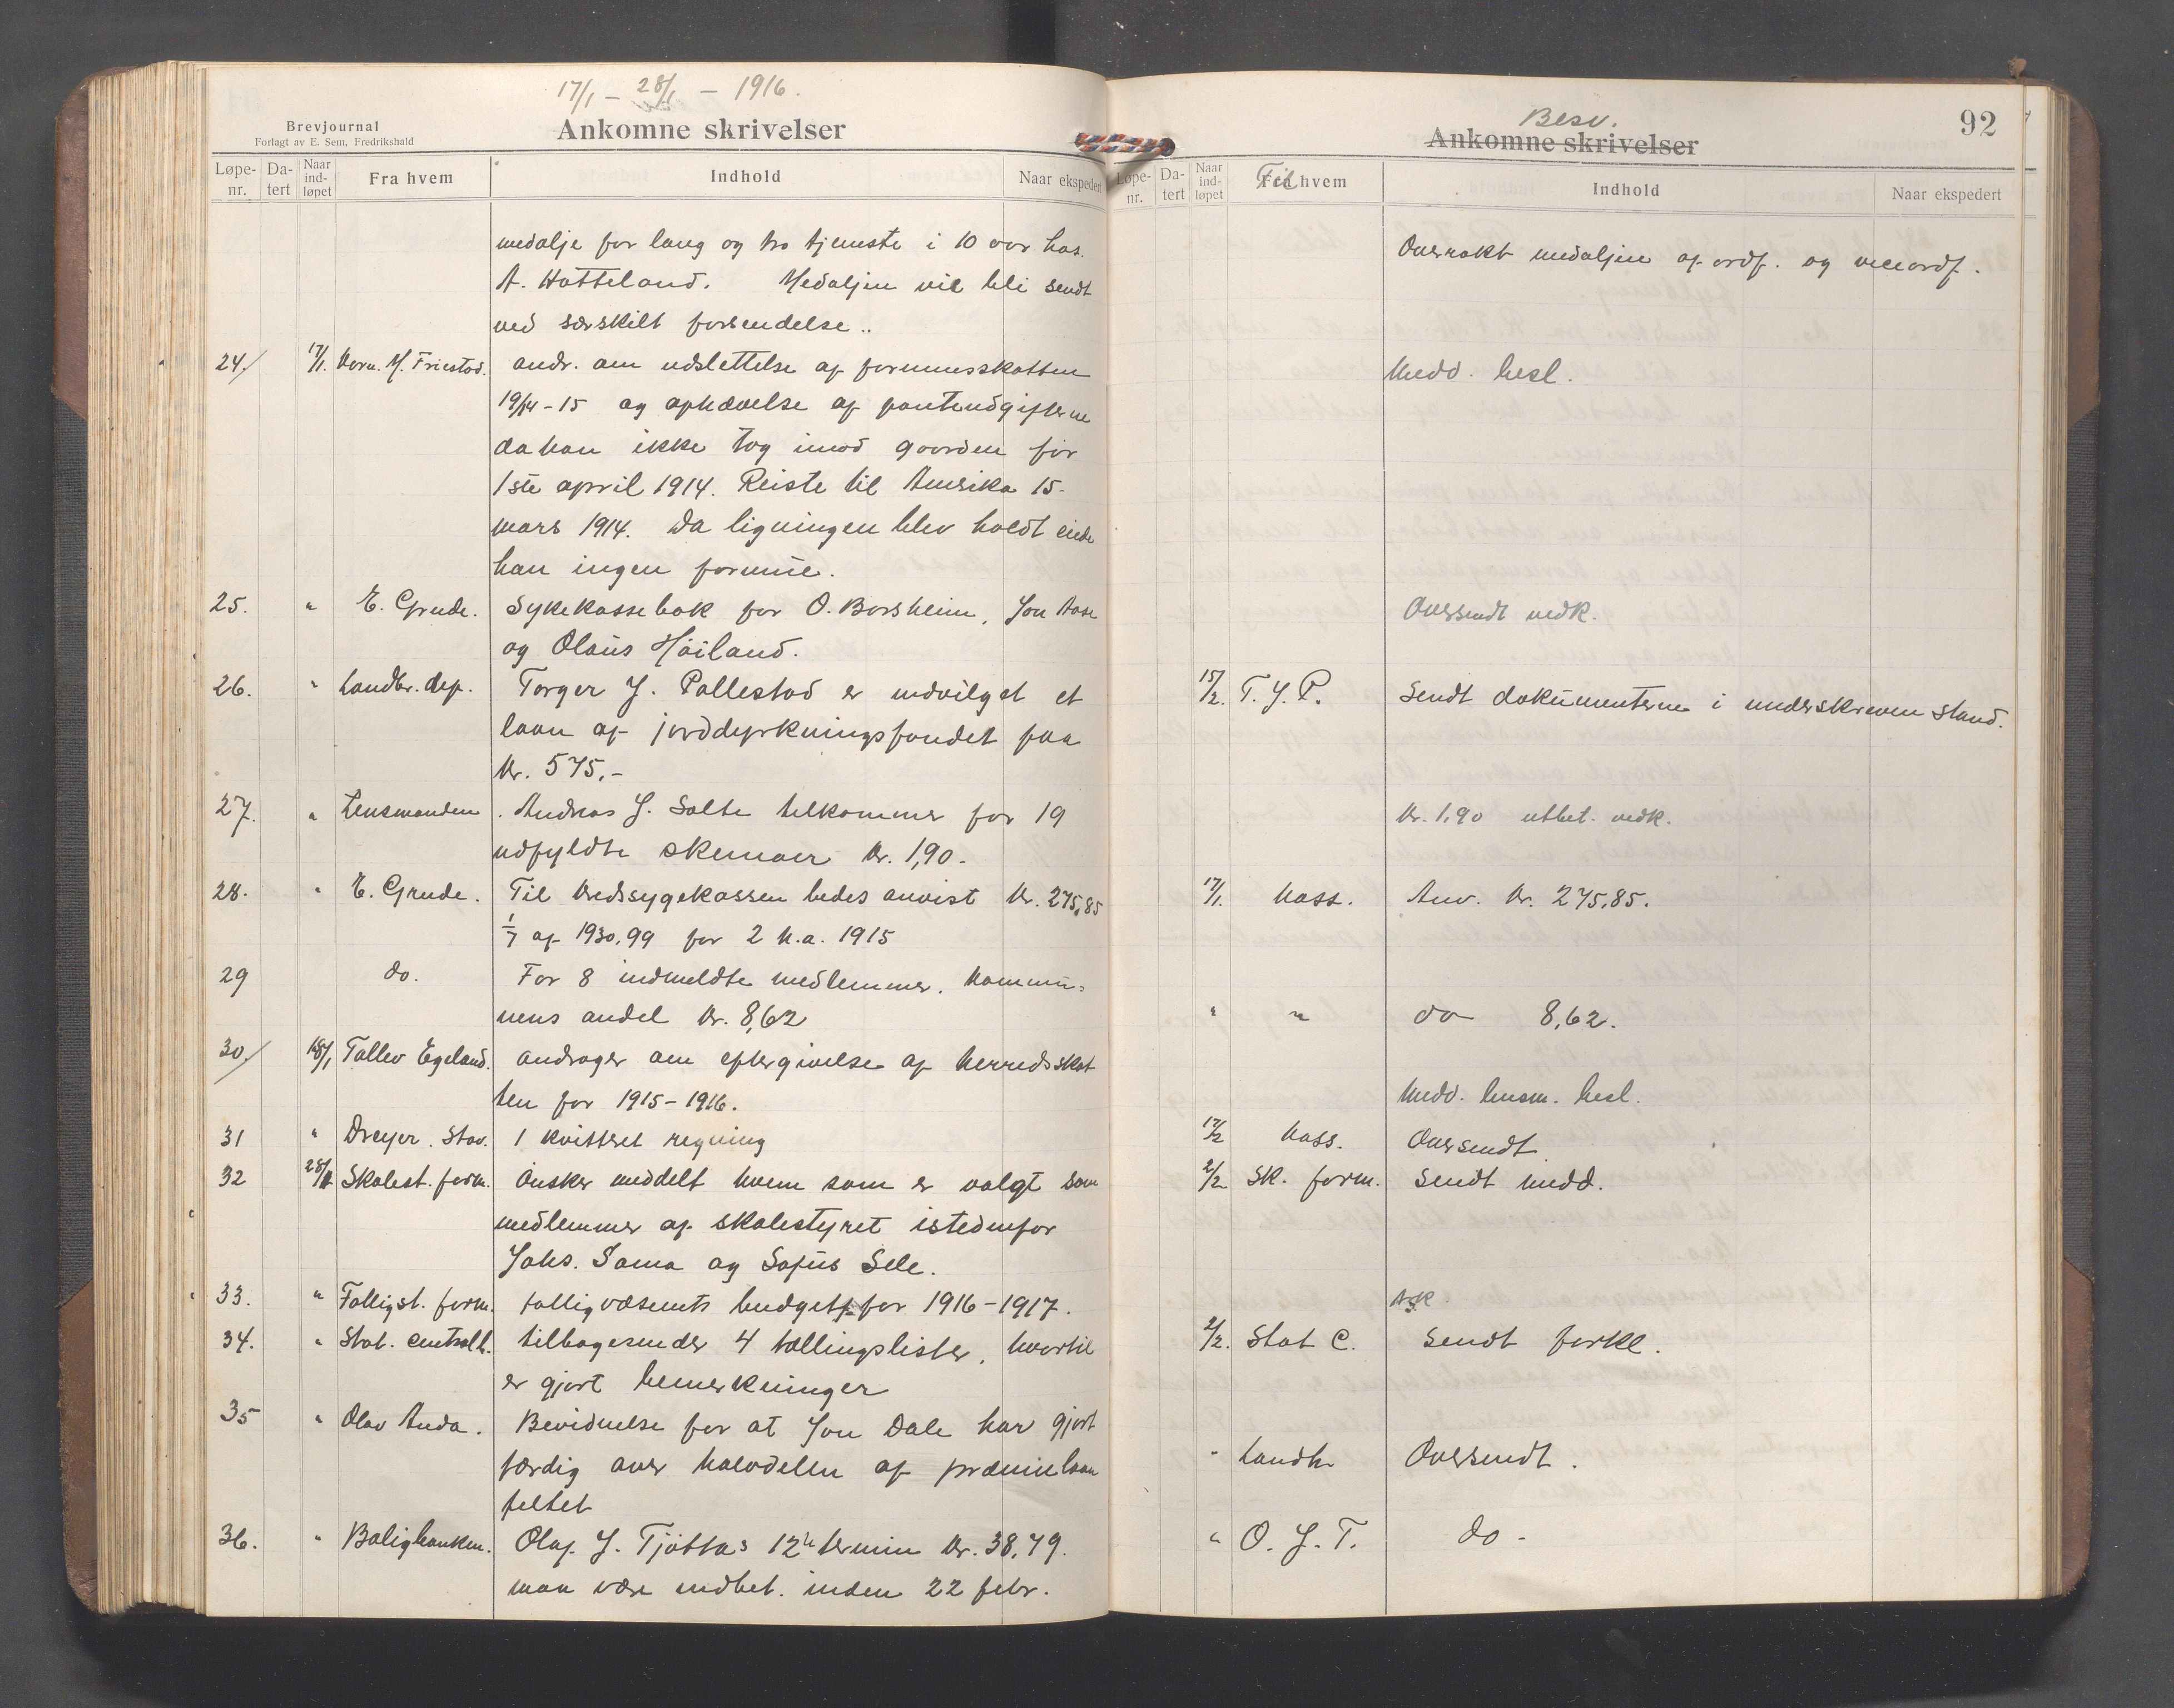 17/1 - 28/1 - 1916.
Brevjournal
Forlagt av E. Sem, Fredrikshald
Ankomne skrivelser
Løpe-nr. Da-tert Naar ind-løpet Fra hvem Indhold Naar ekspedert
medalje for lang og tro tjeneste i 10 aar hos
A. Hatteland. Medaljen vil bli sendt
ved særskilt forsendelse..
24. 17/1. Korn. M. Friestad. andr. om udslettelse af formuesskatten
1914-15 og ophævelse af panteudgifterne
da han ikke tog imod gaarden før
1ste april 1914. Reiste til Amerika 15-
mars 1914. Da ligningen blev holdt eiede
han ingen formue.
25. " E. Grude. Sykekassebok for O. Borsheim, Jon Aase
og Olaus Høiland.
26. " Landbr. dep. Torger J. Pollestad er indvilget et
laan af jorddyrkningsfondet paa
kr. 575.-
27. " Lensmanden. Andreas J. Salte tilkommer for 19
udfyldte skemaer kr. 1,90.
28. " E. Grude. Til kredssygekassen bedes anvist kr. 275,85
1/7 af 1930,99 for 2 h.a. 1915
29 do. For 8 indmeldte medlemmer. Kommu=
nens andel kr. 8,62
30/ 18/1 Tollev Egeland. andrager om eftergivelse af herredsskat
ten for 1915-1916.
31 " Dreyer. Stav. 1 kvitteret regning
32 28/1 Skolest. form. Ønsker meddelt hvem som er valgt som
medlemmer af skolestyret istedenfor
Johs. Soma og Sofus Sele.
33. " Fattigst. form. fattigvæsenets budget for 1916-1917.
34. " Stat. centralb. tilbagesender 4 tællingslister, hvortil
er gjort bemerkninger
35 " Olav Anda. Bevidnelse for at Jon Dale har gjort
færdig over halvdelen af præmielaan
feltet
36. " Boligbanken. Olaf J. Tjøttas 12te termin kr. 38,79.
maa være indbet. inden 22 febr.
Besv.
Ankomne skrivelser
92
Løpe-nr. Da-tert Naar ind-løpet Til hvem Indhold Naar ekspedert
Overrakt medaljen af ordf. og viceordf.
Medd. besl.
Oversendt vedk.
15/2. T. J. P. Sendt dokumenterne i underskreven stand.
Kr. 1,90 utbet. vedk.
17/1. Kass. Anv. kr. 275,85.
" " do 8,62.
Medd. besl.
17/2 Kass. Oversendt.
2/2 Sk. form. Sendt medd.
2/2. Stat C. Sendt forkl.
" Landb Oversendt.
" O. J. T. do -